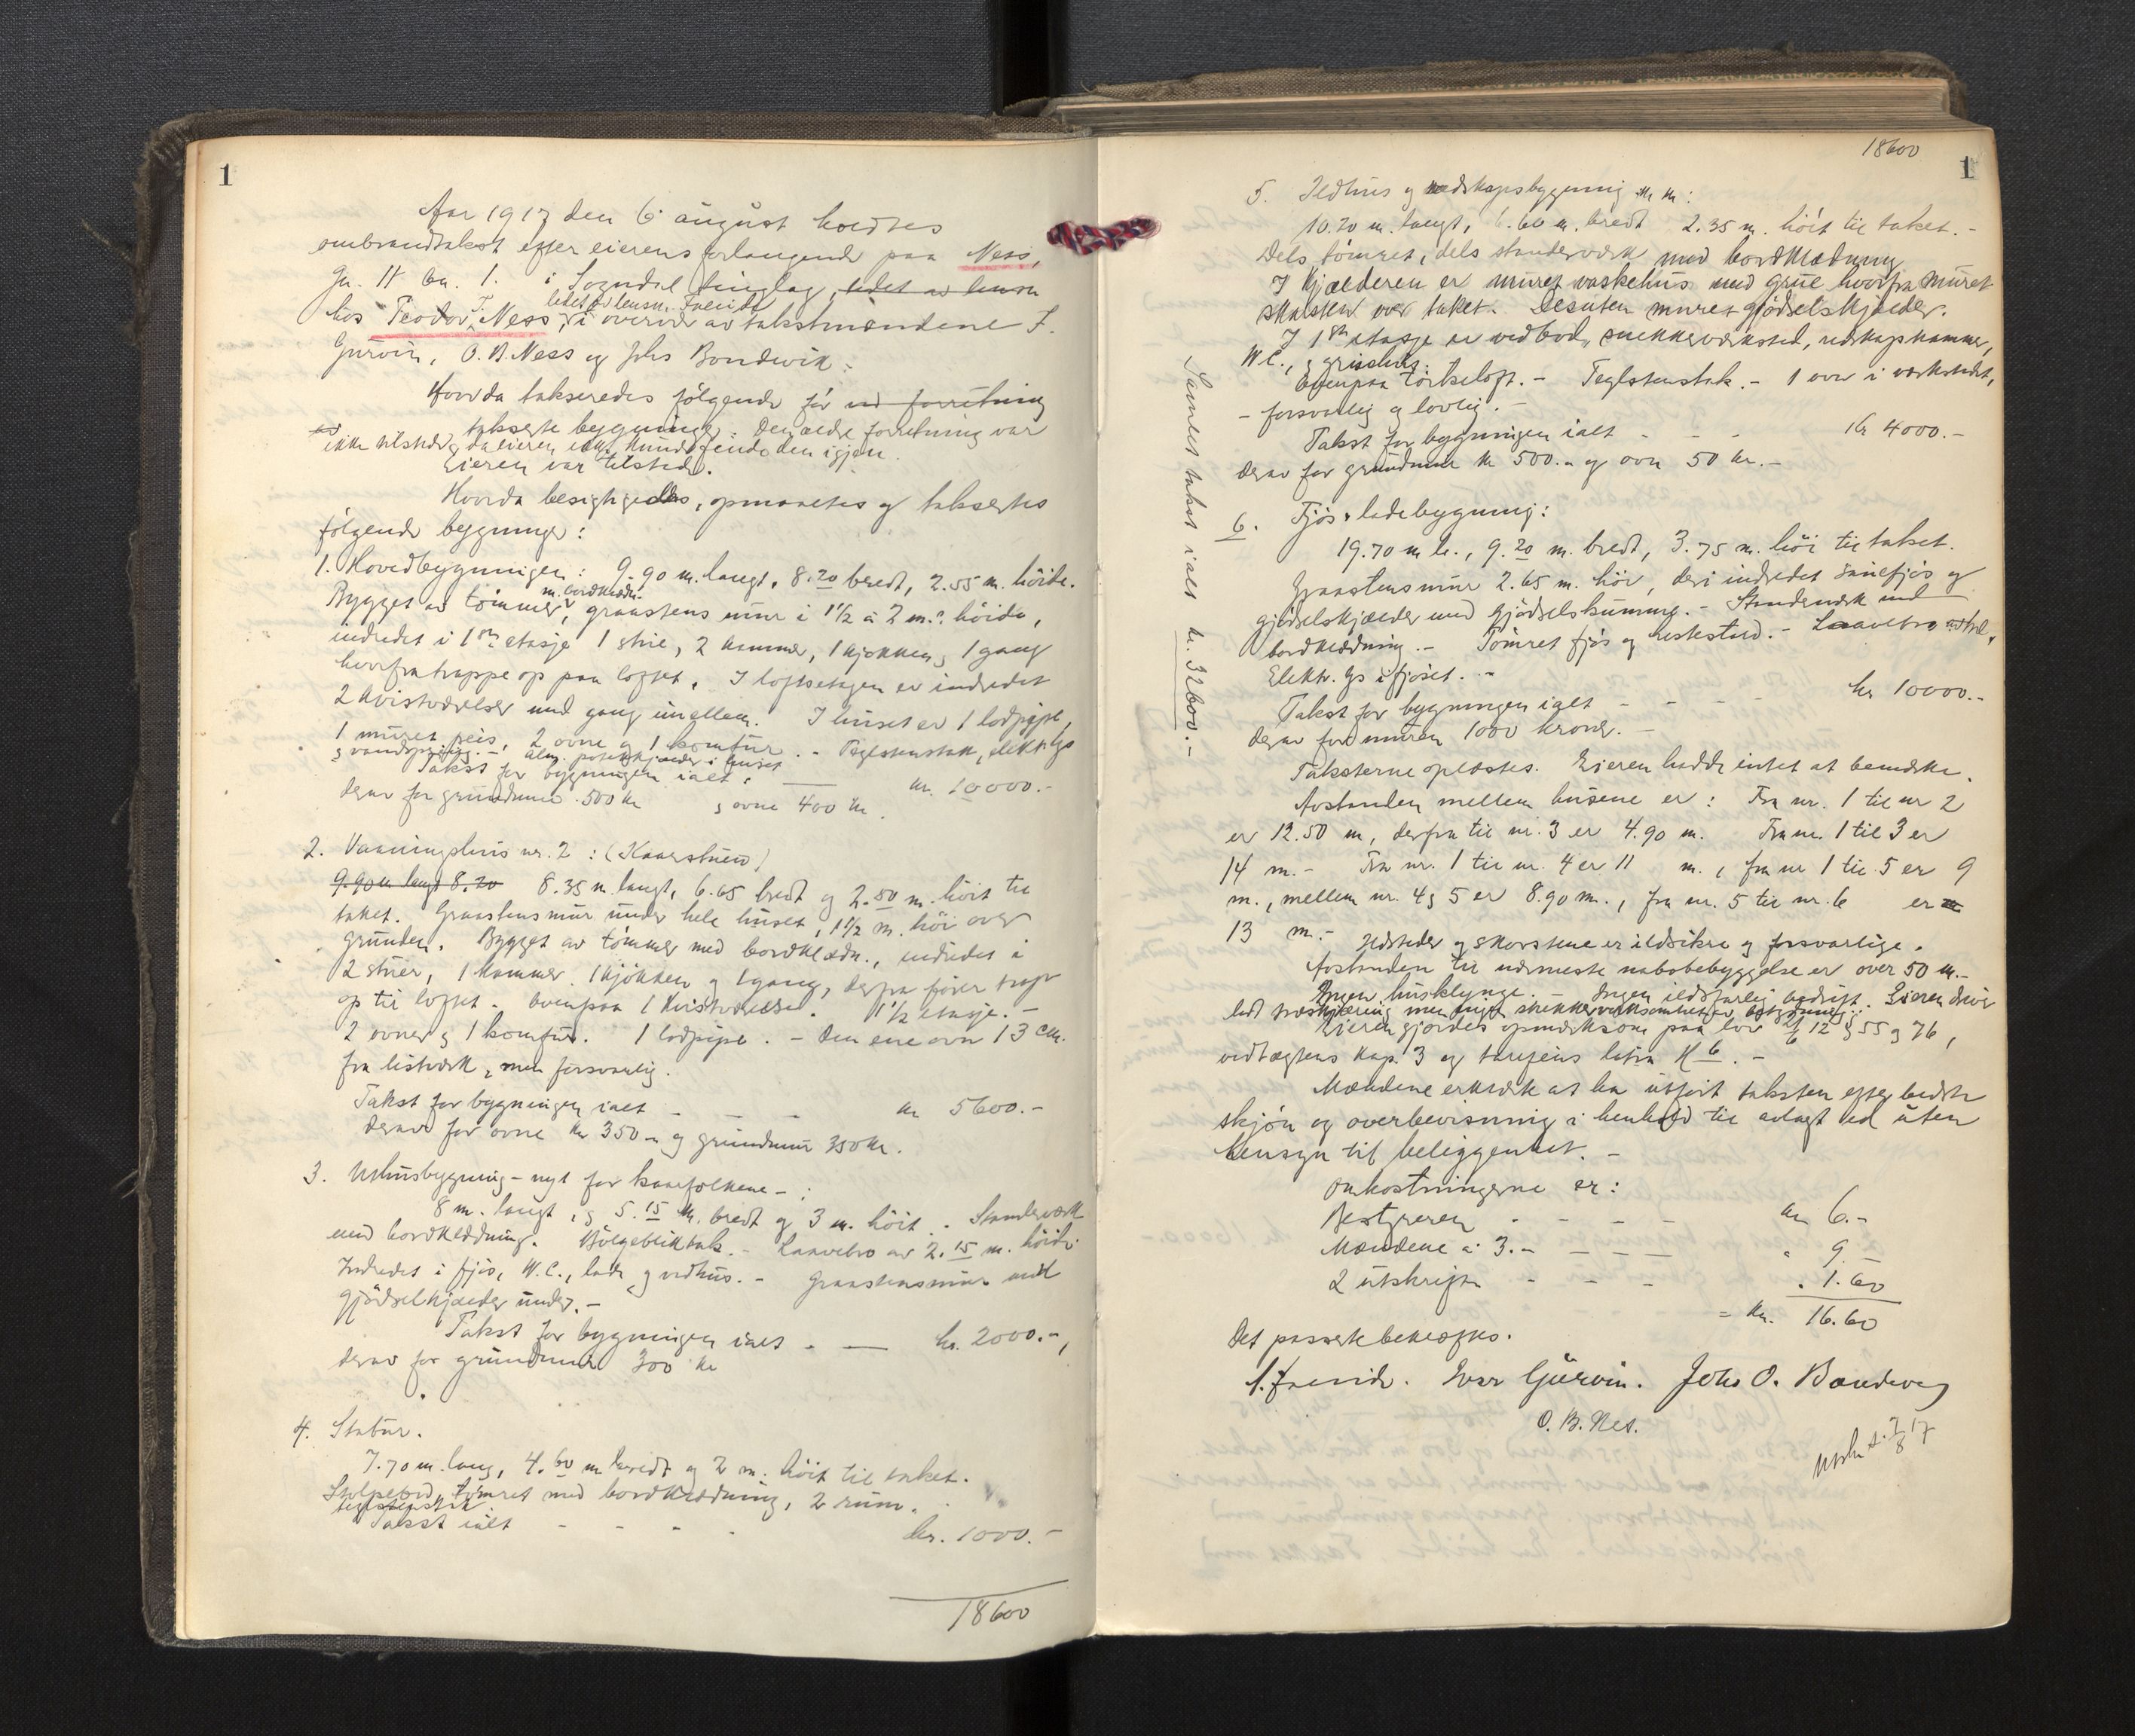 1
Aar 1917 den 6 august holdtes
ombrandtakst efter eierens forlangende paa Ness,
Gn. 11 bn. 1. i Sogndal tinglag, ledet av lensm
ledet av lensm. Faleide
hos Teodor T. Ness, i overvær av takstmændene I.
Gurvin, O. B. Ness og Johs Bondevik:
Hvorda takseredes følgende før ved forretning
takserte bygninger. Den ældre forretning var
ikke tilstede, da eieren ikke kunde finde den igjen.
Eieren var tilstede.
Hvorda besigtigedes, opmaaltes og taksertes
følgende bygninger:
1. Hovedbygningen: 9.90 m. langt, 8.20 bredt, 2.55 m. høide.
m. bordklædn.
Bygget av tømmer, graastens mur i 1 1/2 à 2 m. høide,
indredet i 1ste etasje 1 stue, 2 kammer, 1 kjøkken, 1 gang
hvorfra trappe op paa loftet. I loftsetagen er indredet
2 kvistværelser med gang imellem. I huset er 1 lodpipe,
1 muret peis, 2 ovne og 1 komfur. - Teglstenstak, elektr. lys
og vandspring. - Alm. potetkjælder i huset
Takst for bygningen ialt: kr. 10000.-
derav for grundmur 500 kr og ovne 400 kr.
2. Vaaningshus nr. 2: (Kaarstuen)
9.90 m langt 8.20 8.35 m langt, 6.65 bredt og 2.50 m. høit til
taket. Graastensmur under hele huset, 1 1/2 m. høi over
grunden. Bygget av tømmer med bordklædn., indredet i
2 stuer, 1 kammer, 1 kjøkken og 1 gang, derfra fører trapp
op til loftet. Ovenpaa 1 kvistværelse. 1 1/2 etasje. -
2 ovner og 1 komfur. 1 lodpipe. - Den ene ovn 13 cm.
fra listverk, men forsvarlig.
Takst for bygningen ialt - - - kr 5600.-
derav for ovne kr 350.- og grundmur 350 kr.
3. Uthusbygning - nyt for kaarfolkene - :
8 m. langt, og 5.15 m. bredt og 3 m. høit. Stenderverk
med bordklædning. Bølgebliktak. - Laavebro av 2.15 m. høide.
Indredet i fjøs, W.C., lade og vedhus. - Graastensmur med
gjødselkjælder under. -
Takst for bygningen ialt - kr. 2000.-,
derav for grundmur 300 kr
4. Stabur.
7.70 m. lang, 4.60 m bredt og 2 m. høit til taket.
Stolpebod, tømret med bordklædning, 2 rum.
teglstenstak.
Takst ialt - - - - kr. 1000.-
18600
18600
1
5. Ildhus og redskapsbygning m m:
10.20 m. langt, 6.60 m. bredt 2.35 m. høit til taket. -
Dels tømret, dels stenderverk med bordklædning
I kjælderen er muret vaskehus med grue hvorfra muret
skorsten over taket. Desuten muret gjødselskjælder.
I 1ste etasje er vedbod, snekkerverksted, redskapskammer,
W.C., og grisehus.
Ovenpaa tørkeloft. - Teglstenstak. - 1 ovn i verkstedet,
- forsvarlig og lovlig. -
Takst for bygningen ialt - - - kr 4000.-
derav for grundmur kr 500.- og ovn 50 kr. -
6. Fjøs & ladebygning:
19.70 m l., 9.20 m. bredt, 3.75 m. høi til taket.
Graastensmur 2.65 m. høi, deri indredet sauefjøs og
gjødselskjælder med gjødselskumme. - Stenderverk med
bordklædning. - Tømret fjøs og hestestald. - Laavebro
Elektr. lys i fjøset. -
Takst for bygningen ialt - - - - kr 10000.-
derav for muren 1000 kroner. -
Taksterne oplæstes. Eieren hadde intet at bemerke.
Avstanden mellem husene er: Fra nr. 1 til nr 2
er 12.50 m, derfra til nr. 3 er 4.90 m. Fra nr. 1 til 3 er
14 m. - Fra nr. 1 til nr. 4 er 11 m., fra nr 1 til 5 er 9
m., mellem nr. 4 og 5 er 8.90 m., fra nr. 5 til nr. 6 er
13 m. - Ildsteder og skorstene er ildsikre og forsvarlige.
Avstanden til nærmeste nabobebyggelse er over 50 m. -
Ingen husklynge. - Ingen ildsfarlig bedrift. Eieren driver
lidt træskjæring men
Eieren gjordes opmerksom paa lov 12 § 55 og 76,
vedtægtens kap. 3 og tarifens litra H 6. -
Mændene erklærte at ha utført taksten efter bedste
skjøn og overbevisning i henhold til avlagt ed uten
hensyn til beliggenhet. -
Omkostningerne er:
Bestyreren - - - - kr 6.-
Mændene à 3.- - - - " 9.
2 utskrifter - - - " 1.60
= kr. 16.60
Det passerte bekræftes.
A. Faleide. Iver Gurvin. Johs O. Bondevig
O. B. Nes.
Utskr. s. 7/8 17
Samlet takst ialt kr. 32600.-